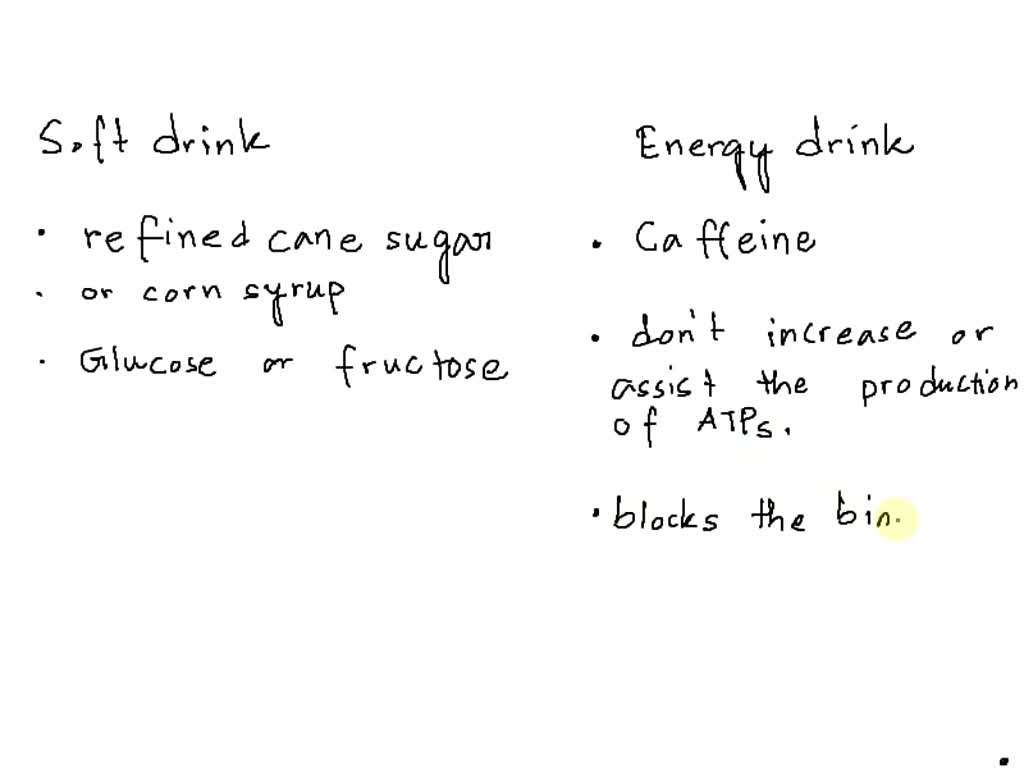 Soft drink
• refined cane sugar
• or corn syrup
• Glucose or fructose
Energy drink
• Caffeine
• don't increase or
assist the production
of ATPs.
• blocks the bin